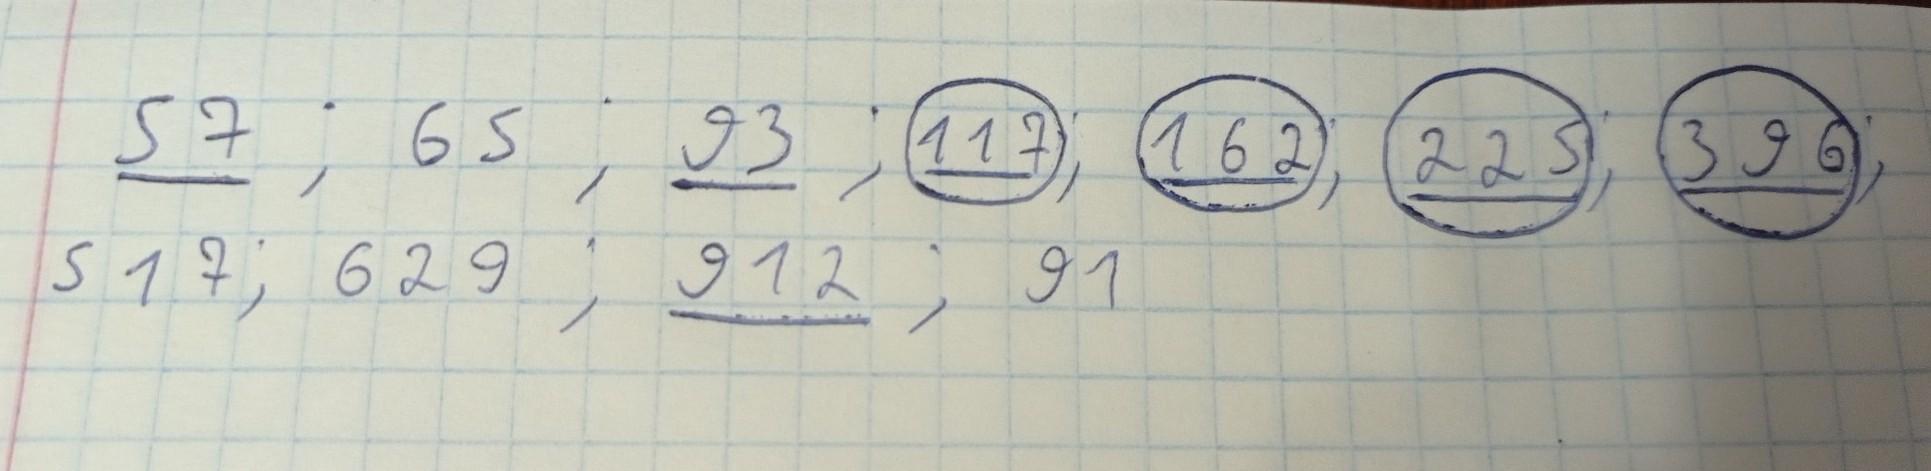 57; 65; 93; 117; 162; 225; 396;
517; 629; 912; 91